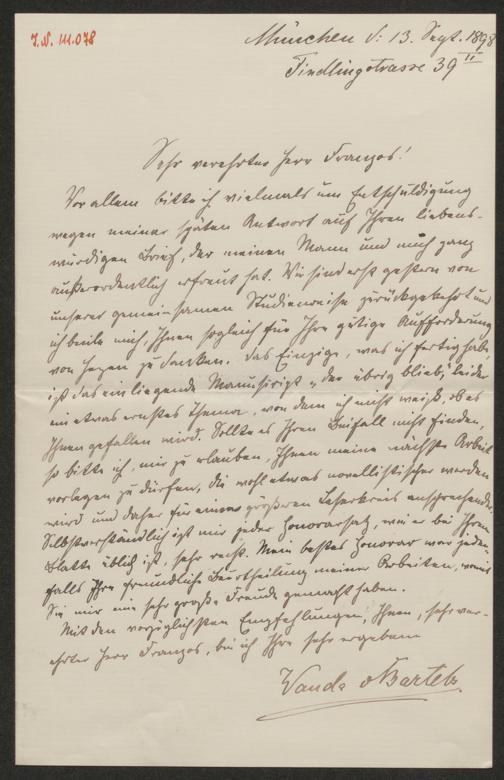 I.N. 111.078
München d: 13. Sept. 1898
Findlingstrasse 39 II
Sehr verehrter Herr Franzos!
Vor allem bitte ich vielmals um Entschuldigung
wegen meiner späten Antwort auf Ihren liebens-
würdigen Brief, der meinen Mann und mich ganz
außerordentlich erfreut hat. Wir sind erst gestern von
unserer gemeinsamen Studienreise zurückgekehrt und
ich beeile mich, Ihnen sogleich für Ihre gütige Aufforderung
von Herzen zu danken. Das Einzige, was ich fertig habe,
ist das einliegende Manuscript „der übrig blieb", leider
ein etwas ernstes Thema, von dem ich nicht weiß, ob es
Ihnen gefallen wird. Sollte es Ihren Beifall nicht finden,
so bitte ich, mir zu erlauben, Ihnen meine nächste Arbeit
vorlegen zu dürfen, die wohl etwas novellistischer werden
wird und daher für einen größeren Leserkreis ansprechender.
Selbstverständlich ist mir jeder Honorarsatz, wie er bei Ihrem
Blatte üblich ist, sehr recht. Mein bestes Honorar war jeden-
falls Ihre freundliche Beurtheilung meiner Arbeiten, womit
Sie mir eine sehr große Freude gemacht haben.
Mit den vorzüglichsten Empfehlungen, Ihnen, sehr ver-
ehrter Herr Franzos, bin ich Ihre sehr ergebene
Wanda v Bartels.